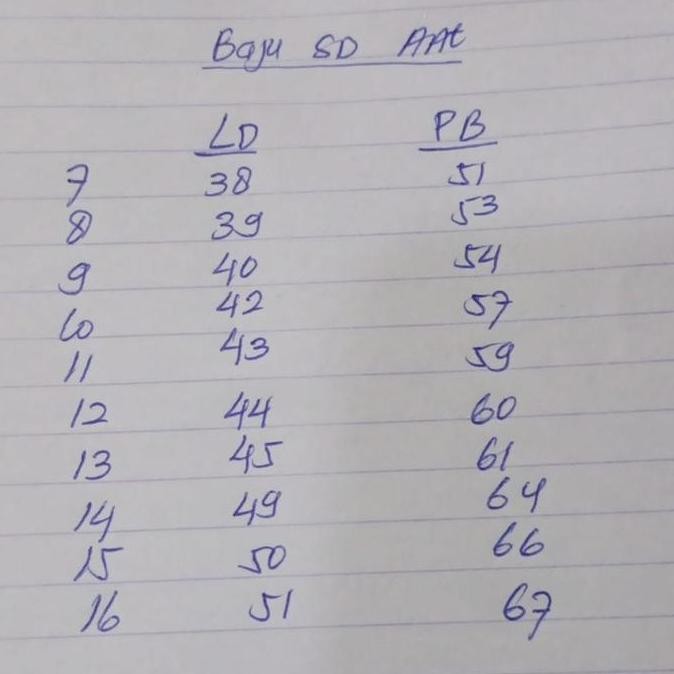 Baju SD AAt
LD PB
7 38 51
8 39 53
9 40 54
10 42 57
11 43 59
12 44 60
13 45 61
14 49 64
15 50 66
16 51 67